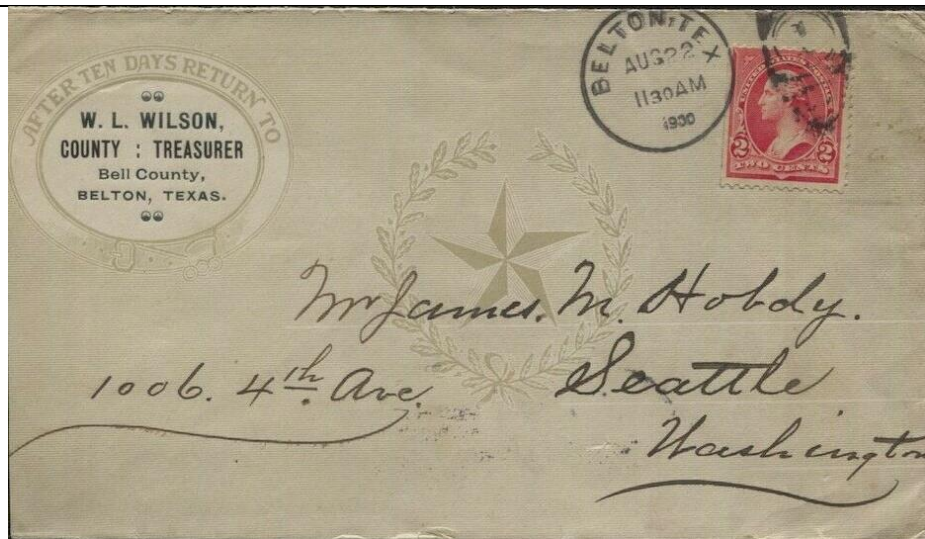 AFTER TEN DAYS RETURN TO
W. L. WILSON,
COUNTY : TREASURER
Bell County,
BELTON, TEXAS.
BELTON, TEX
AUG 22
1130AM
1900
UNITED STATES POSTAGE
2 2
TWO CENTS
Mr James. M. Hobdy.
1006. 4th Ave. Seattle
Washington